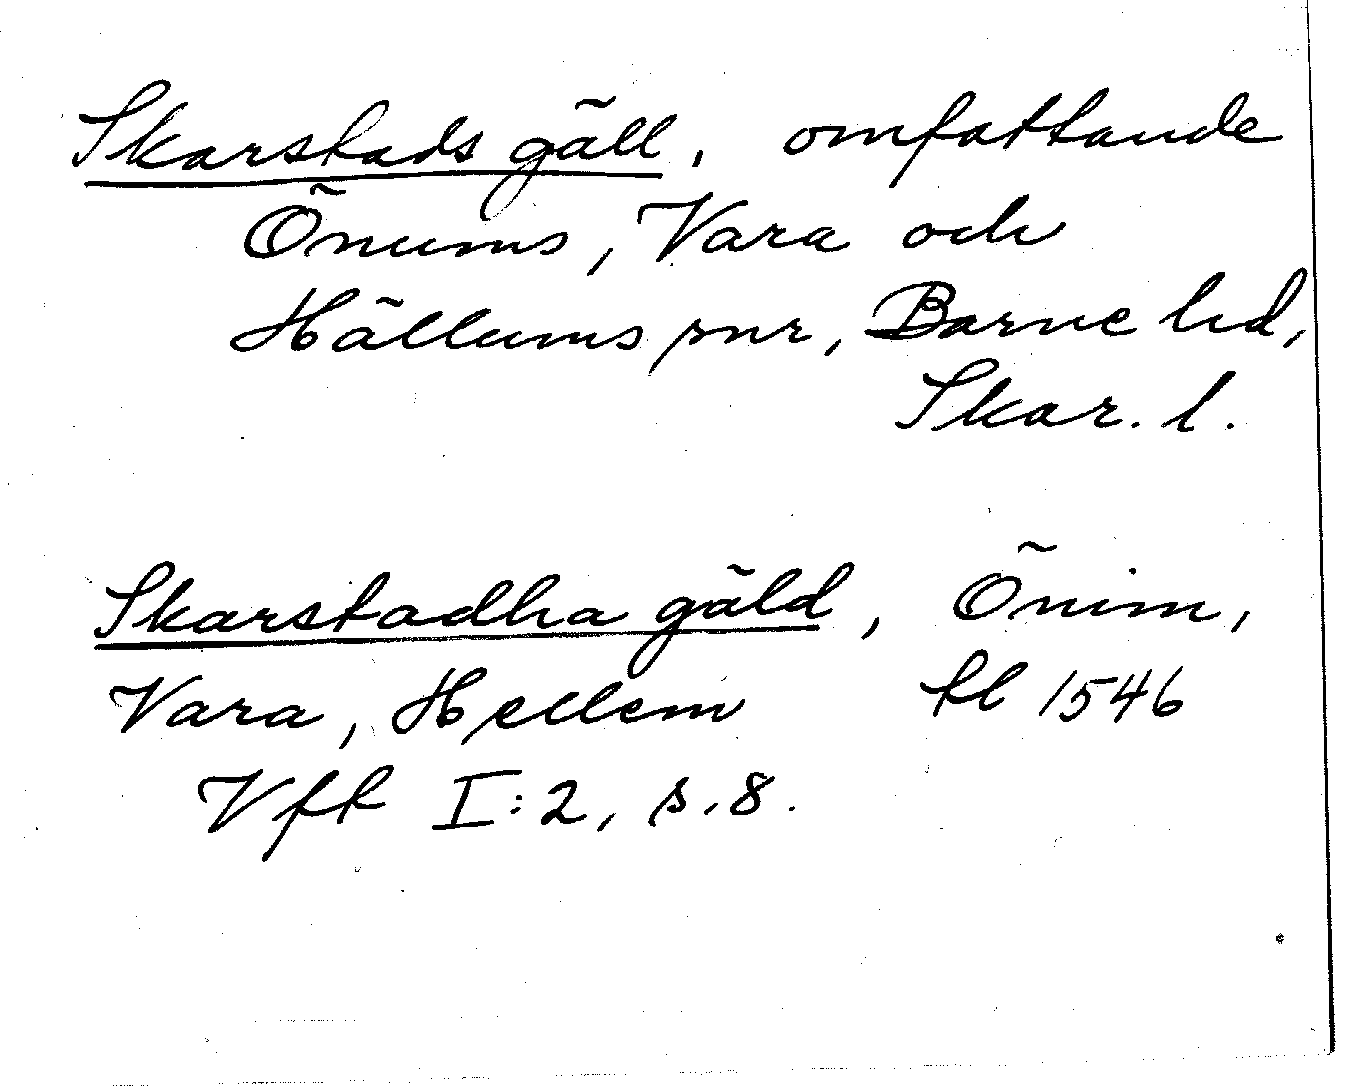 Skarstads gäll, omfattande
Önums, Vara och
Hällums snr, Barne hd,
Skar. l.
Skarstadha gäld, Önim,
Vara, Hellem kl 1546
Vfk I:2, s. 8.